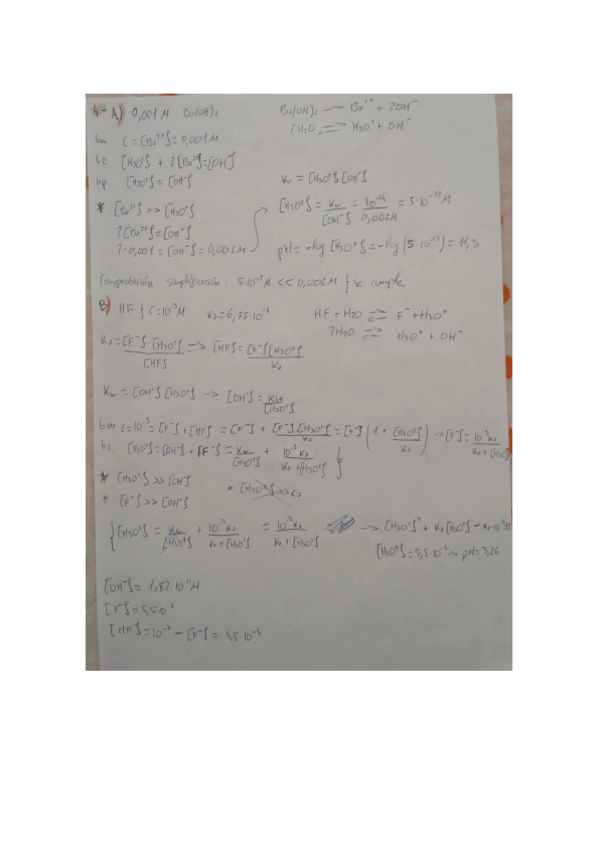 1- A) 0,001 M Ba(OH)₂ Ba(OH)₂ → Ba²⁺ + 2OH⁻
2H₂O ⇌ H₃O⁺ + OH⁻
bm C = [Ba²⁺] = 0,001 M
bc [H₃O⁺] + 2[Ba²⁺] = [OH⁻]
bp [H₃O⁺] = [OH⁻] Kw = [H₃O⁺][OH⁻]
* [Ba²⁺] >> [H₃O⁺] [H₃O⁺] = Kw/[OH⁻] = 10⁻¹⁴/0,002M = 5·10⁻¹² M
2[Ba²⁺] = [OH⁻]
2·0,001 = [OH⁻] = 0,002 M pH = -log [H₃O⁺] = -log (5·10⁻¹²) = 11,3
Comprobación simplificación: 5·10⁻¹² M << 0,002 M } se cumple
B) HF } C = 10⁻³ M Ka = 6,75·10⁻⁴ HF + H₂O ⇌ F⁻ + H₃O⁺
2H₂O ⇌ H₃O⁺ + OH⁻
Ka = [F⁻]·[H₃O⁺]/[HF] → [HF] = [F⁻][H₃O⁺]/Ka
Kw = [OH⁻][H₃O⁺] → [OH⁻] = Kw/[H₃O⁺]
bm C = 10⁻³ = [F⁻] + [HF] = [F⁻] + [F⁻][H₃O⁺]/Ka = [F⁻] (1 + [H₃O⁺]/Ka) → [F⁻] = 10⁻³Ka/Ka + [H₃O⁺]
bc. [H₃O⁺] = [OH⁻] + [F⁻] = Kw/[H₃O⁺] + 10⁻³Ka/Ka + [H₃O⁺] }
* [H₃O⁺] >> [OH⁻]
* [F⁻] >> [OH⁻]
{ [H₃O⁺] = Kw/[H₃O⁺] + 10⁻³Ka/Ka + [H₃O⁺] = 10⁻³Ka/Ka + [H₃O⁺] → [H₃O⁺]² + Ka[H₃O⁺] - Ka·10⁻³=0
[H₃O⁺] = 5,5·10⁻⁴ → pH = 3,26
[OH⁻] = 1,82·10⁻¹¹ M
[F⁻] = 5,5·10⁻⁴
[HF] = 10⁻³ - [F⁻] = 4,5·10⁻⁴